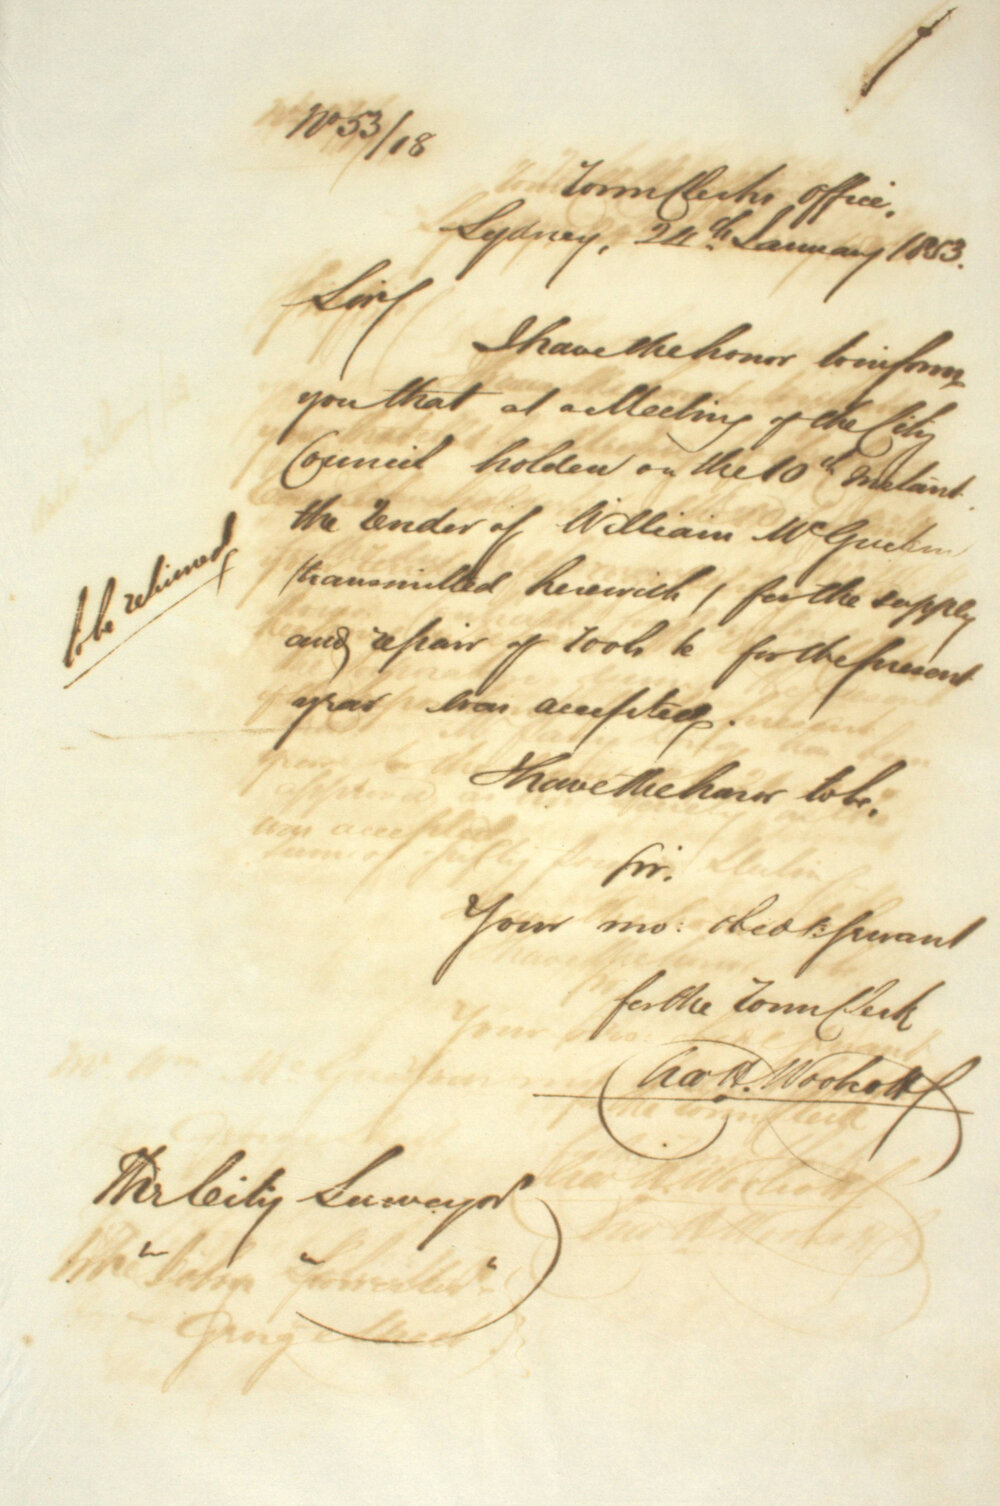 No 53/18
Town Clerks Office,
Sydney, 24th January 1853.
Sir,
I have the honor to inform
you that at a Meeting of the City
Council holden on the 10th Instant
the Tender of William McGuckin
(transmitted herewith) for the supply
and repair of Tools &c for the present
year was accepted.
to be returned
I have the honor to be,
Sir,
Your mo: obedt: Servant
for the Town Clerk
Chas H. Woolcott
The City Surveyor